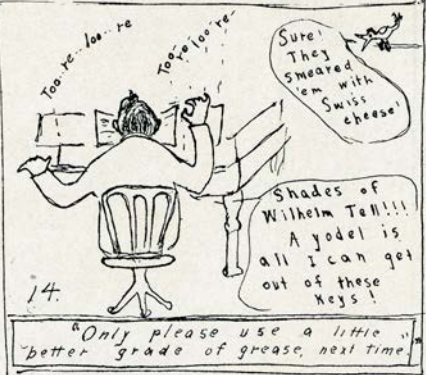 Too--re--loo--re
Too--re loo're-
Sure!
They
smeared
'em with
Swiss
cheese'
Shades of
Wilhelm Tell!!!
A yodel is
all I can get
out of these
Keys!
14.
"Only please use a little
better grade of grease, next time."